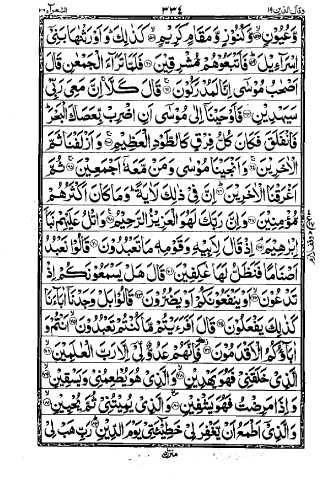 وقال الذين ١٩ ٣٣٤ الشعرآء ٢٦
وَّعُيُوْنٍ ۙ وَّكُنُوْزٍ وَّمَقَامٍ كَرِيْمٍ ۙ كَذٰلِكَ ؕ وَاَوْرَثْنٰهَا بَنِيْۤ
اِسْرَآءِيْلَ ؕ فَاَتْبَعُوْهُمْ مُّشْرِقِيْنَ فَلَمَّا تَرَآءَ الْجَمْعٰنِ قَالَ
اَصْحٰبُ مُوْسٰۤى اِنَّا لَمُدْرَكُوْنَ ۚ قَالَ كَلَّا ۚ اِنَّ مَعِيَ رَبِّيْ
سَيَهْدِيْنِ فَاَوْحَيْنَاۤ اِلٰى مُوْسٰۤى اَنِ اضْرِبْ بِّعَصَاكَ الْبَحْرَ ؕ
فَانْفَلَقَ فَكَانَ كُلُّ فِرْقٍ كَالطَّوْدِ الْعَظِيْمِ ۚ وَاَزْلَفْنَا ثَمَّ
الْاٰخَرِيْنَ ۚ وَاَنْجَيْنَا مُوْسٰى وَمَنْ مَّعَهٗۤ اَجْمَعِيْنَ ۚ ثُمَّ
اَغْرَقْنَا الْاٰخَرِيْنَ ؕ اِنَّ فِيْ ذٰلِكَ لَاٰيَةً ؕ وَمَا كَانَ اَكْثَرُهُمْ
مُّؤْمِنِيْنَ وَاِنَّ رَبَّكَ لَهُوَ الْعَزِيْزُ الرَّحِيْمُ وَاتْلُ عَلَيْهِمْ نَبَاَ
اِبْرٰهِيْمَ ۘ اِذْ قَالَ لِاَبِيْهِ وَقَوْمِهٖ مَا تَعْبُدُوْنَ قَالُوْا نَعْبُدُ
اَصْنَامًا فَنَظَلُّ لَهَا عٰكِفِيْنَ قَالَ هَلْ يَسْمَعُوْنَكُمْ اِذْ
تَدْعُوْنَ ۙ اَوْ يَنْفَعُوْنَكُمْ اَوْ يَضُرُّوْنَ قَالُوْا بَلْ وَجَدْنَاۤ اٰبَآءَنَا
كَذٰلِكَ يَفْعَلُوْنَ قَالَ اَفَرَءَيْتُمْ مَّا كُنْتُمْ تَعْبُدُوْنَ ۙ اَنْتُمْ وَ
اٰبَآؤُكُمُ الْاَقْدَمُوْنَ فَاِنَّهُمْ عَدُوٌّ لِّيْۤ اِلَّا رَبَّ الْعٰلَمِيْنَ ۙ
الَّذِيْ خَلَقَنِيْ فَهُوَ يَهْدِيْنِ ۙ وَالَّذِيْ هُوَ يُطْعِمُنِيْ وَيَسْقِيْنِ ۙ
وَاِذَا مَرِضْتُ فَهُوَ يَشْفِيْنِ ۙ وَالَّذِيْ يُمِيْتُنِيْ ثُمَّ يُحْيِيْنِ ۙ
وَالَّذِيْۤ اَطْمَعُ اَنْ يَّغْفِرَ لِيْ خَطِيْٓـَٔتِيْ يَوْمَ الدِّيْنِ ؕ رَبِّ هَبْ لِيْ